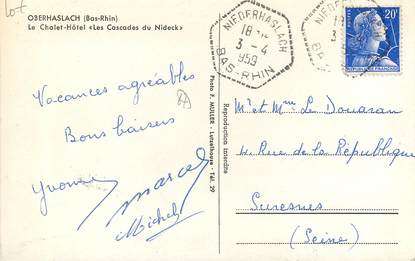 Lot
OBERHASLACH (Bas-Rhin)
Le Chalet-Hôtel «Les Cascades du Nideck»
NIEDERHASLACH
18
3-4
1959
BAS-RHIN
20F
Vacances agréables
Bons baisers
Yvonne
Marcel
Michel
Photo F. MULLER - Lutzelhouse - Tél. 29
Reproduction interdite
Mr et Mme Le Douaran
4 Rue de la République
Suresnes
(Seine)